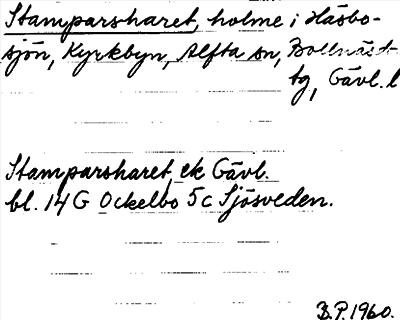 Stamparsharet, holme i Häsbo-
sjön, Kyrkbyn, Alfta sn, Bollnäs
tg, Gävl. l
Stamparsharet, ek Gävl.
bl. 14 G Ockelbo 5 c Sjösveden.
B.P. 1960.